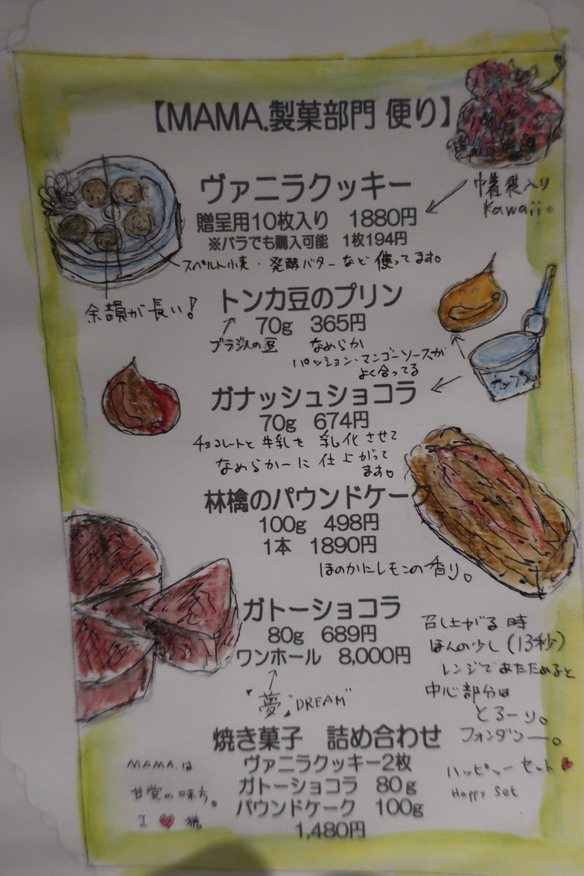 【MAMA.製菓部門 便り】
ヴァニラクッキー
贈呈用10枚入り 1880円
※バラでも購入可能 1枚194円
巾着袋入り
Kawaii。
スペルト小麦・発酵バターなど使ってます。
余韻が長い!
トンカ豆のプリン
70g 365円
ブラジルの豆 なめらか
パッション・マンゴーソースが
よく合ってる
カップ入
ガナッシュショコラ
70g 674円
チョコレートと牛乳を乳化させて
なめらかーに仕上がって
ます。
林檎のパウンドケーク
100g 498円
1本 1890円
ほのかにレモンの香り。
ガトーショコラ
80g 689円
ワンホール 8,000円
"夢" DREAM"
召し上がる時
ほんの少し(13秒)
レンジであたためると
中心部分は
とろーり。
フォンダンー。
焼き菓子 詰め合わせ
ヴァニラクッキー2枚
ガトーショコラ 80g
パウンドケーク 100g
1,480円
ハッピーセット
Happy Set
MAMA.は
甘党の味方。
I ❤